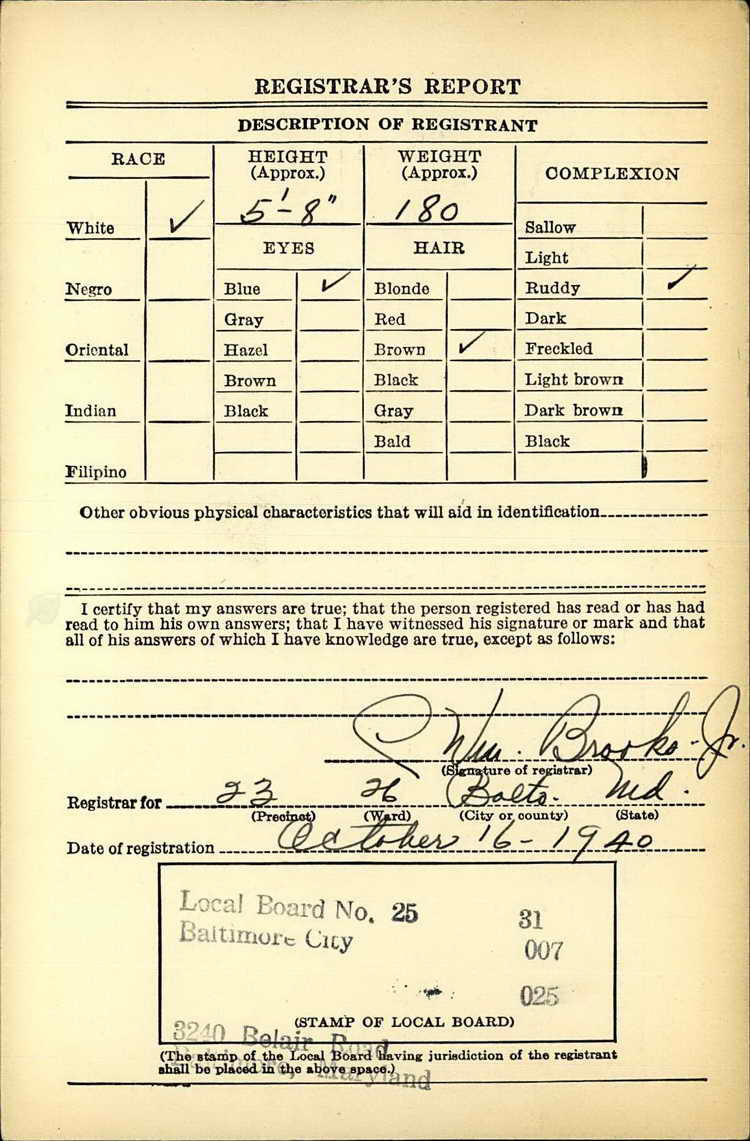 REGISTRAR'S REPORT
DESCRIPTION OF REGISTRANT
RACE
HEIGHT
(Approx.)
WEIGHT
(Approx.)
COMPLEXION
White ✓
5'-8"
180
Sallow
EYES
HAIR
Light
Negro
Blue ✓
Blonde
Ruddy ✓
Gray
Red
Dark
Oriental
Hazel
Brown ✓
Freckled
Brown
Black
Light brown
Indian
Black
Gray
Dark brown
Bald
Black
Filipino
Other obvious physical characteristics that will aid in identification
I certify that my answers are true; that the person registered has read or has had
read to him his own answers; that I have witnessed his signature or mark and that
all of his answers of which I have knowledge are true, except as follows:
Wm. Brooks-Jr.
(Signature of registrar)
Registrar for 23 26 Balto. Md.
(Precinct) (Ward) (City or county) (State)
Date of registration October 16-1940
Local Board No. 25 31
Baltimore City 007
025
(STAMP OF LOCAL BOARD)
3240 Belair Road
Baltimore, Maryland
(The stamp of the Local Board having jurisdiction of the registrant
shall be placed in the above space.)